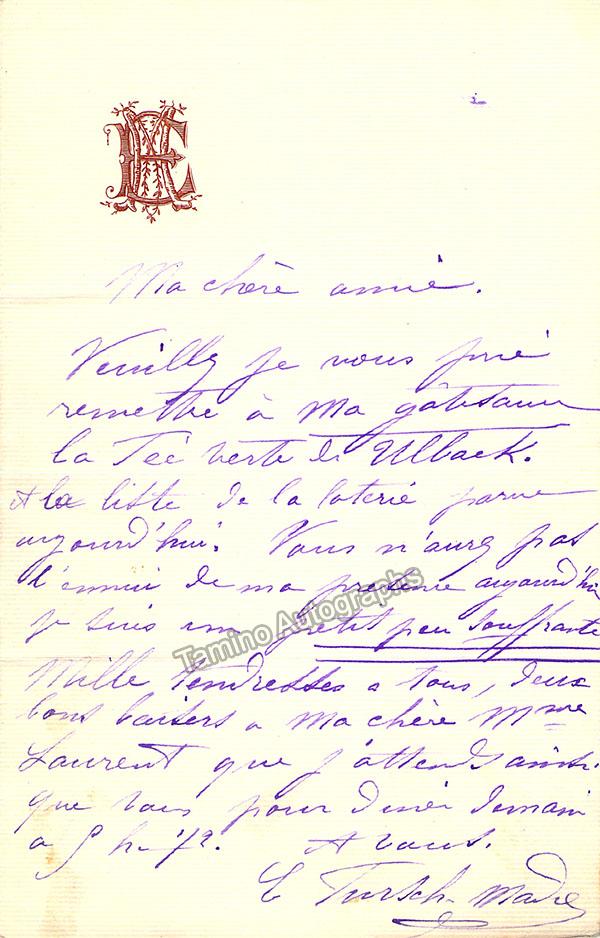 Ma chère amie.
Veuillez je vous prie
remettre à Ma gâteSauce
la Feé verte de Ulback.
et la liste de la loterie parue
aujourd'hui. Vous n'aurez pas
l'ennui de ma presence aujourd'hui
je suis un petit peu souffrante
Mille tendresses a tous, deux
bons baisers a Ma chère Mme
Laurent que j'attends ainsi
que vous pour diner demain
a h. 1/2. A vous.
Tamino Autographs